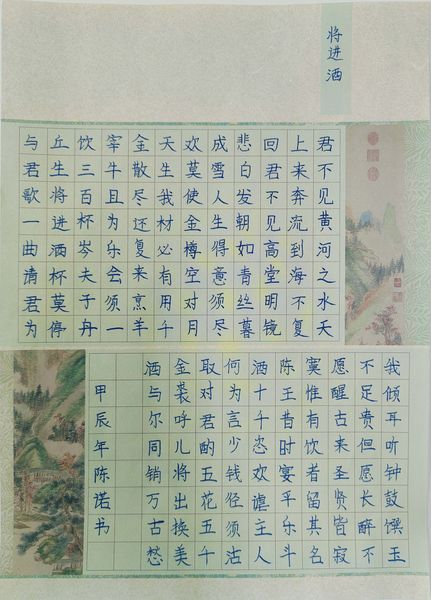 将进酒
君不见黄河之水天
上来奔流到海不复
回君不见高堂明镜
悲白发朝如青丝暮
成雪人生得意须尽
欢莫使金樽空对月
天生我材必有用千
金散尽还复来烹羊
宰牛且为乐会须一
饮三百杯岑夫子丹
丘生将进酒杯莫停
与君歌一曲请君为
我倾耳听钟鼓馔玉
不足贵但愿长醉不
愿醒古来圣贤皆寂
寞惟有饮者留其名
陈王昔时宴平乐斗
酒十千恣欢谑主人
何为言少钱径须沽
取对君酌五花五千
金裘呼儿将出换美
酒与尔同销万古愁
甲辰年陈诺书